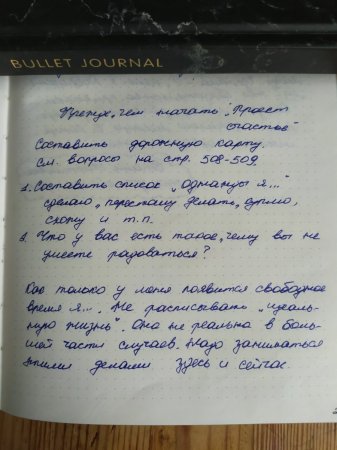 BULLET JOURNAL
Прежде, чем начать "Проект
счастье"
Составить дорожную карту.
См. вопросы на стр. 508-509.
1. Составить список "Однажды я..."
сделаю, перестану делать, куплю,
схожу и т.п.
2. Что у вас есть такое, чему вы не
умеете радоваться?
Как только у меня появится свободное
время я.... Не расписывать "идеаль-
ную жизнь". Она не реальна в боль-
шей части случаев. Надо заниматься
этими делами здесь и сейчас.